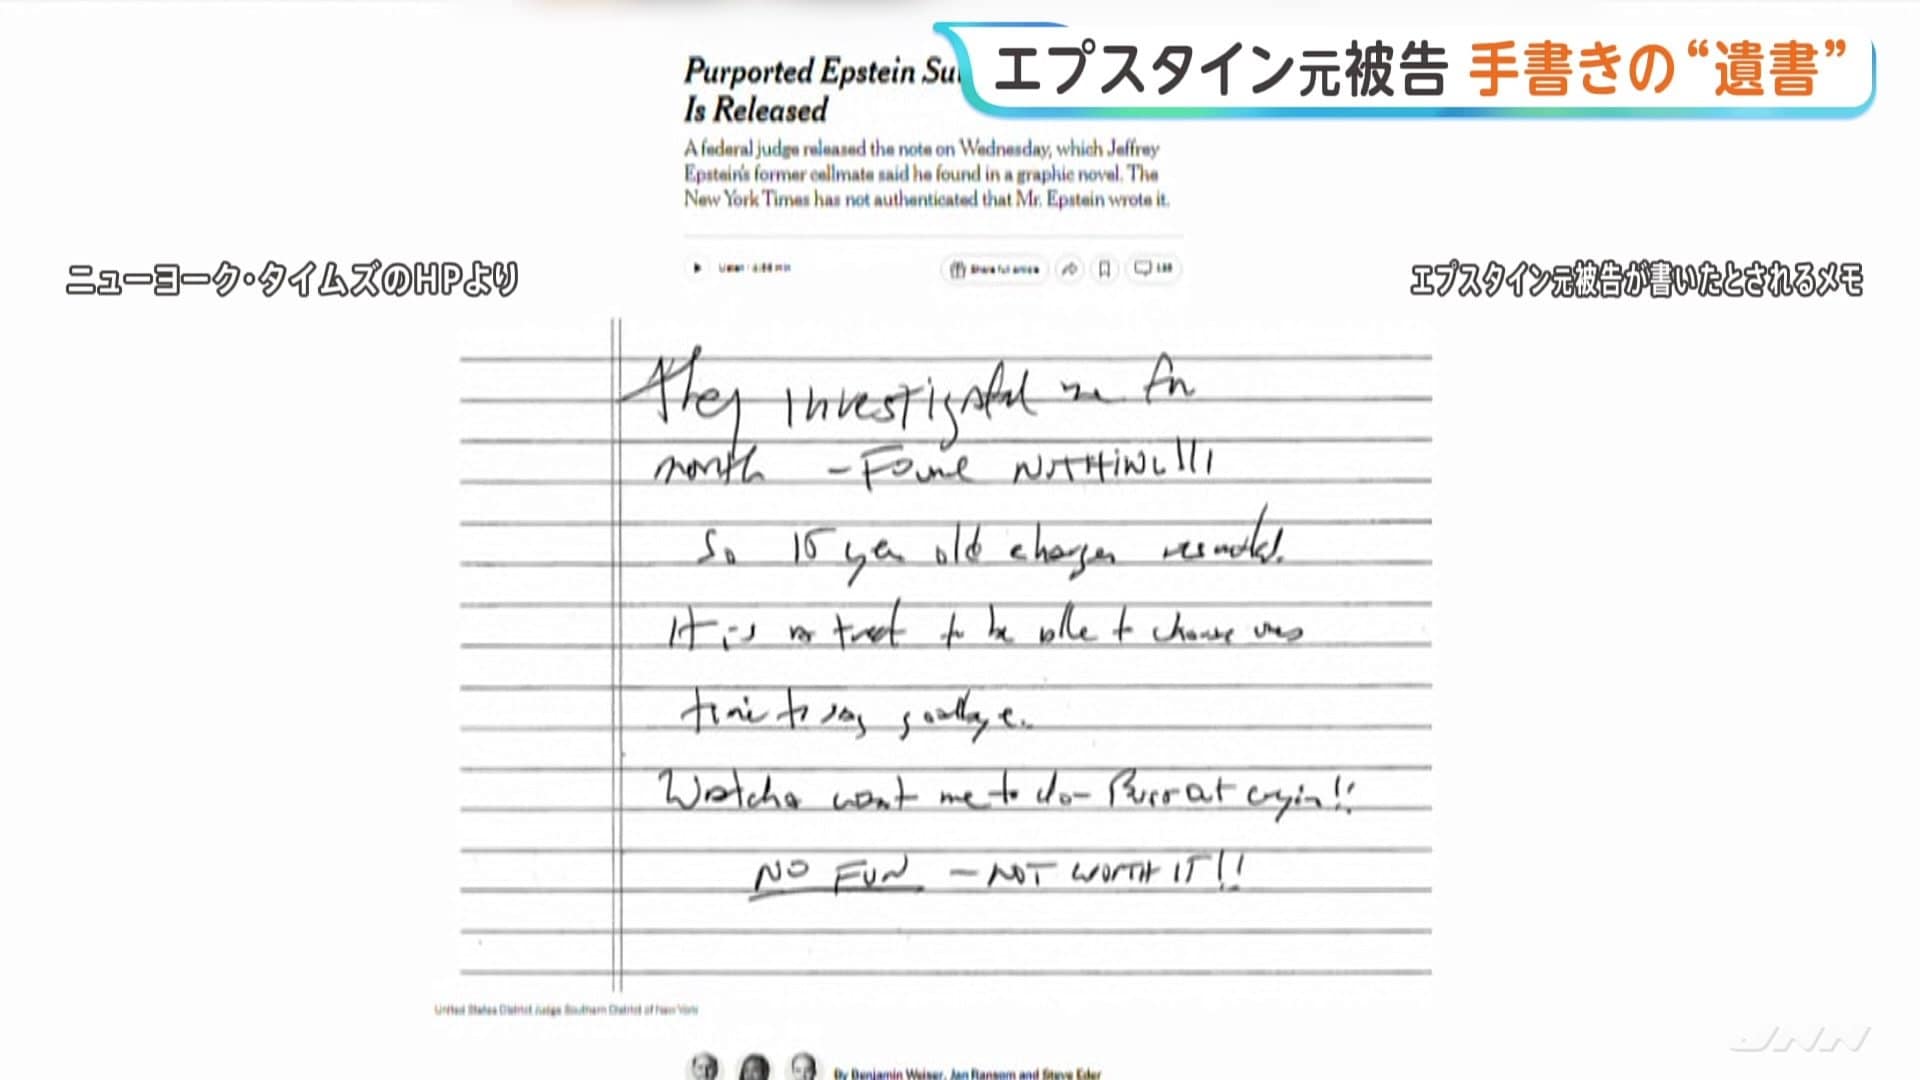 エプスタイン元被告 手書きの“遺書”
Purported Epstein Su
Is Released
A federal judge released the note on Wednesday, which Jeffrey
Epstein's former cellmate said he found in a graphic novel. The
New York Times has not authenticated that Mr. Epstein wrote it.
Share full article
ニューヨーク・タイムズのHPより
エプスタイン元被告が書いたとされるメモ
They investigated me for
month - Found NOTHING!!!
So 15 year old charges
It is a treat to be able to choose ones
time to say goodbye.
Watcha want me to do - Burst out cryin!!
NO FUN - NOT WORTH IT!!
United States District Judge Southern District of New York
By Benjamin Weiser, Jan Ransom and Steve Eder
JNN